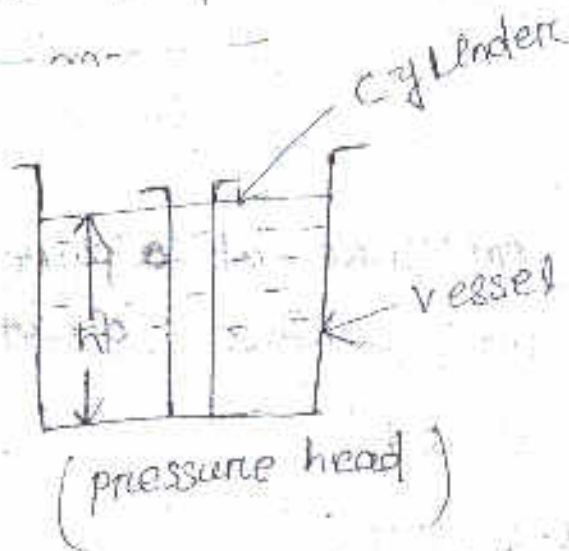 cylinder
vessel
hp
(pressure head)